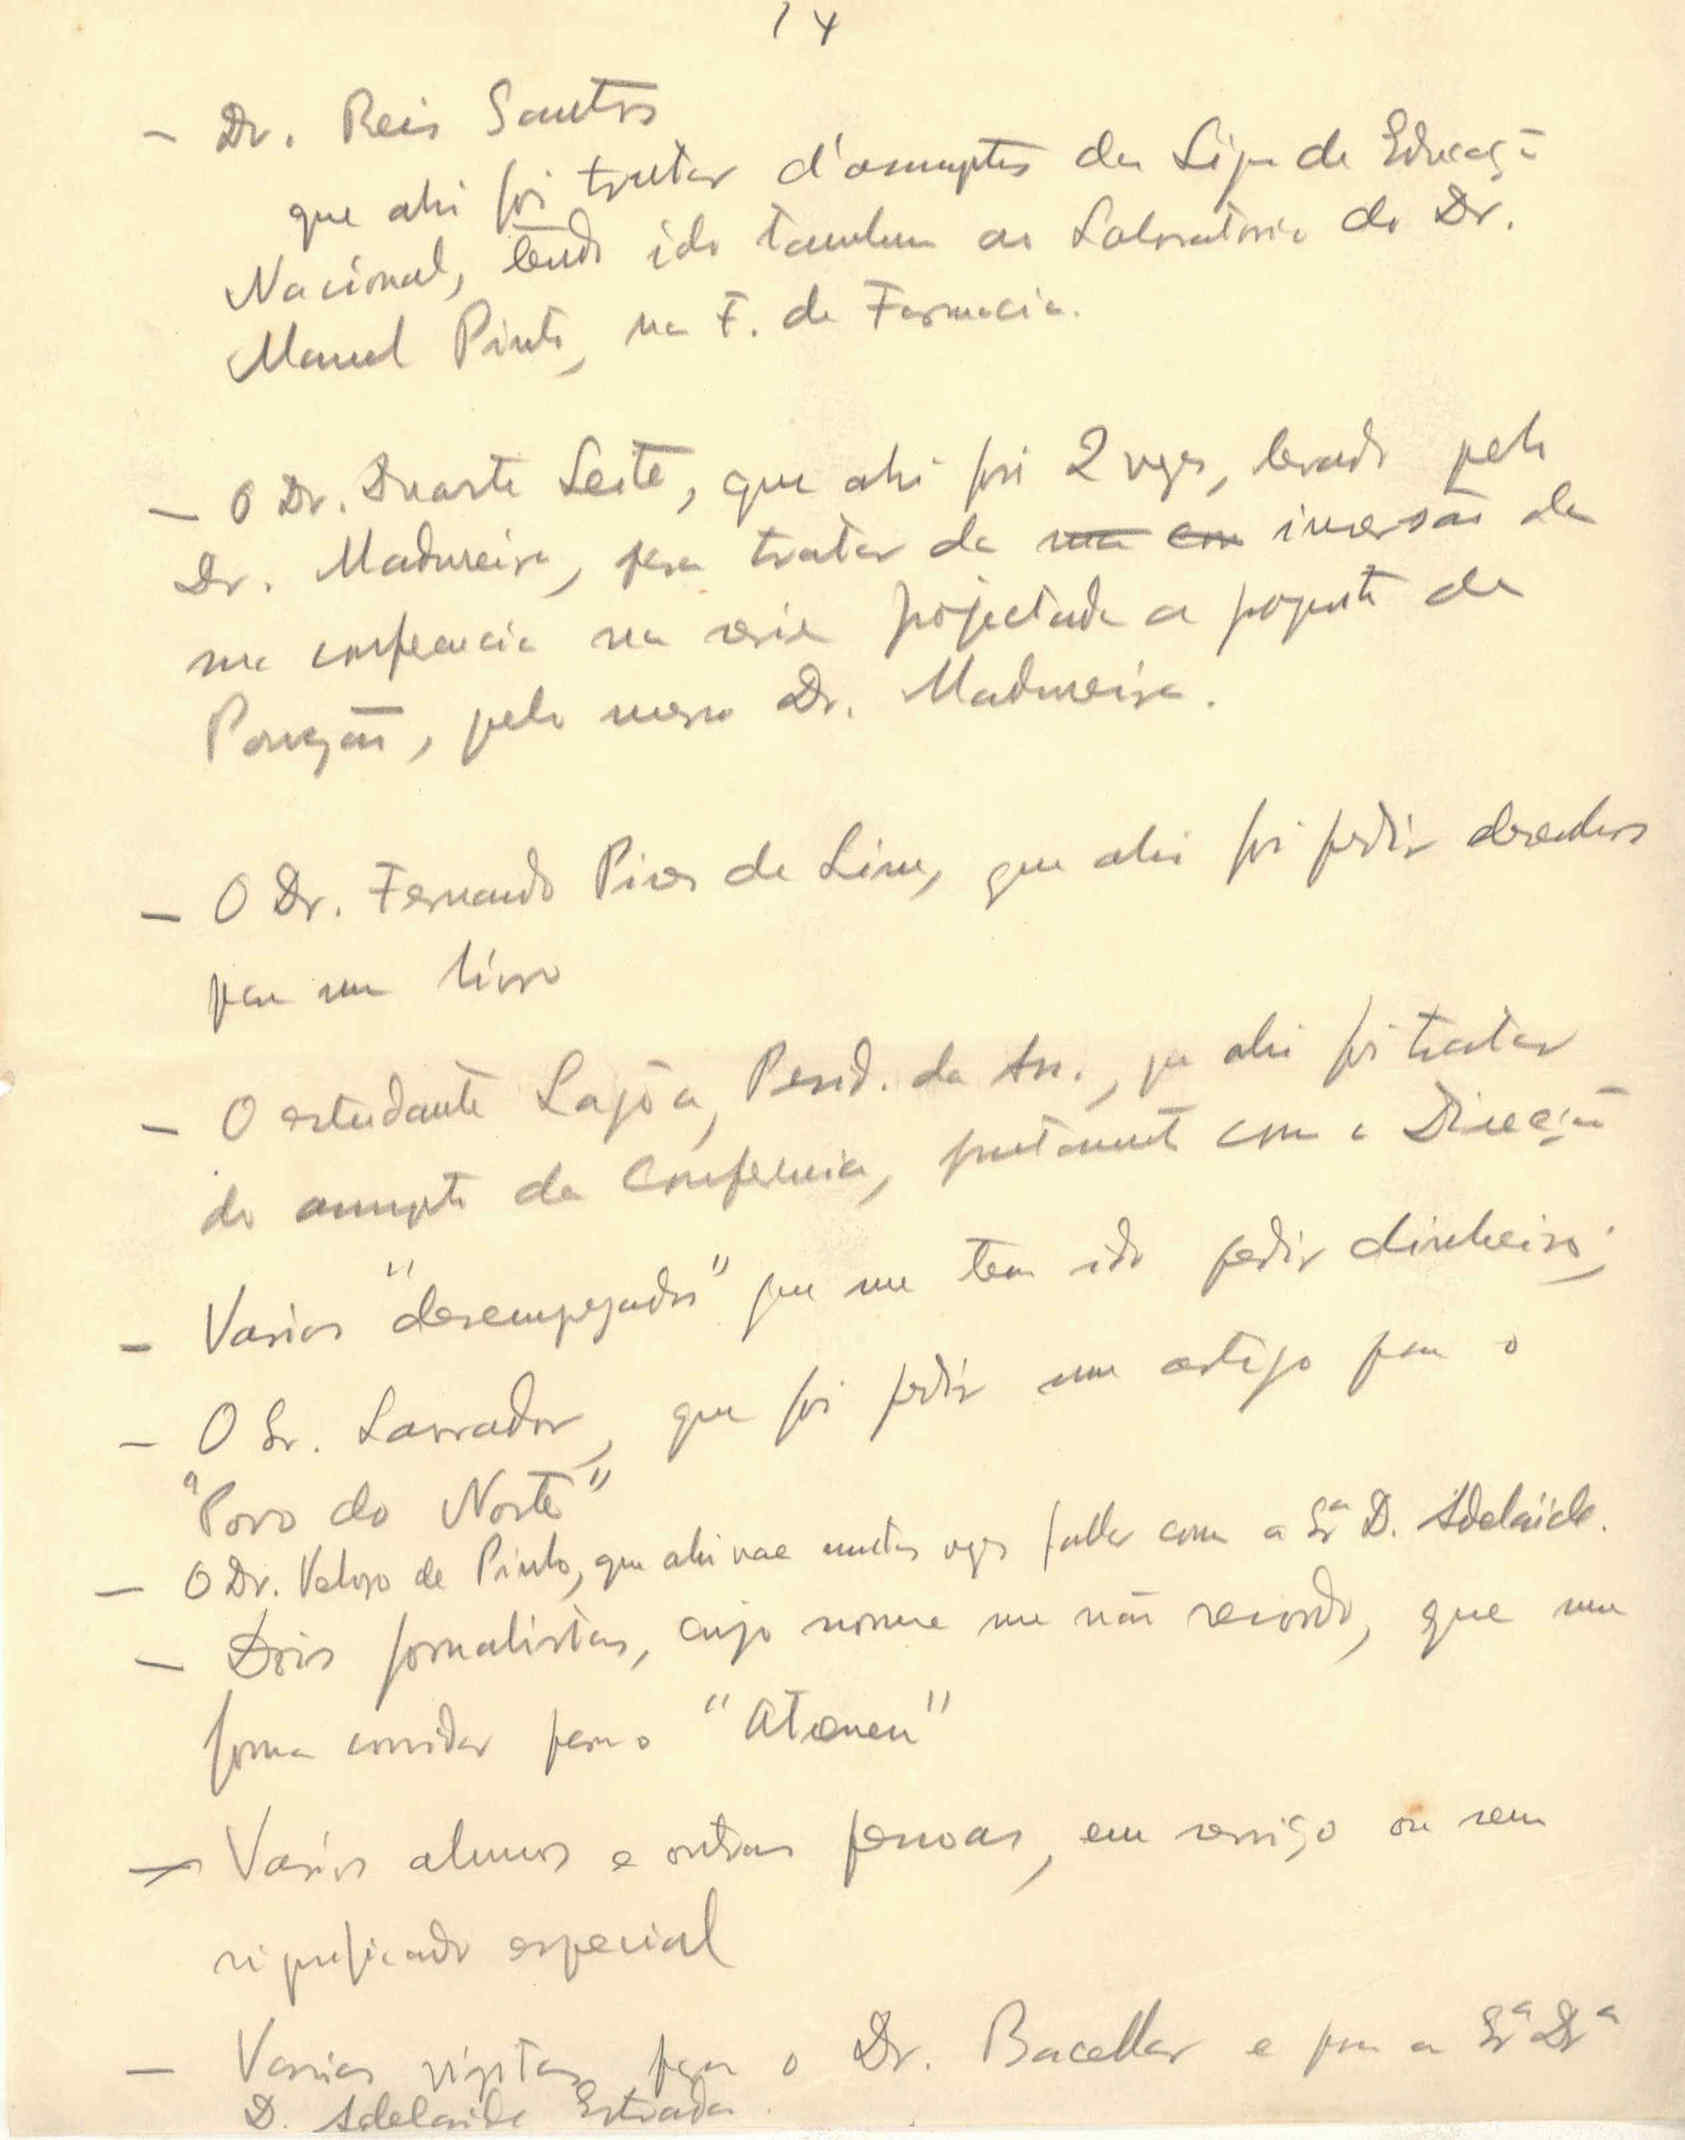 14
- Dr. Reis Santos
que ahi foi tratar d'assumptos da Liga de Educação
Nacional, tendo ido tambem ao Laboratorio do Dr.
Manuel Pinto, na F. de Farmacia.
- O Dr. Duarte Leite, que ahi foi 2 vezes, levado pelo
Dr. Madureira, para tratar da inversão da
conferencia na serie projectada a proposito da
, pelo mesmo Dr. Madureira.
- O Dr. Fernando Pires de Lima, que ahi foi pedir desenhos
para um livro
- O estudante Lagôa, Presid. da Ass., que ahi foi tratar
do assumpto da Conferencia, juntamente com a Direcção
- Varios "desempregados" que me tem ido pedir dinheiro;
- O Sr. Lavrador, que foi pedir um artigo para o
"Povo do Norte"
- O Dr. Veloso de Pinho, que ahi vae muitas vezes fallar com a Srª D. Adelaide.
- Dois jornalistas, cujo nome me não recordo, que me
foram convidar para o "Ateneu"
- Varios alumnos e outras pessoas, em serviço ou sem
significado especial
- Varias visitas para o Dr. Bacellar e para a Srª Drª
D. Adelaide Estrada.